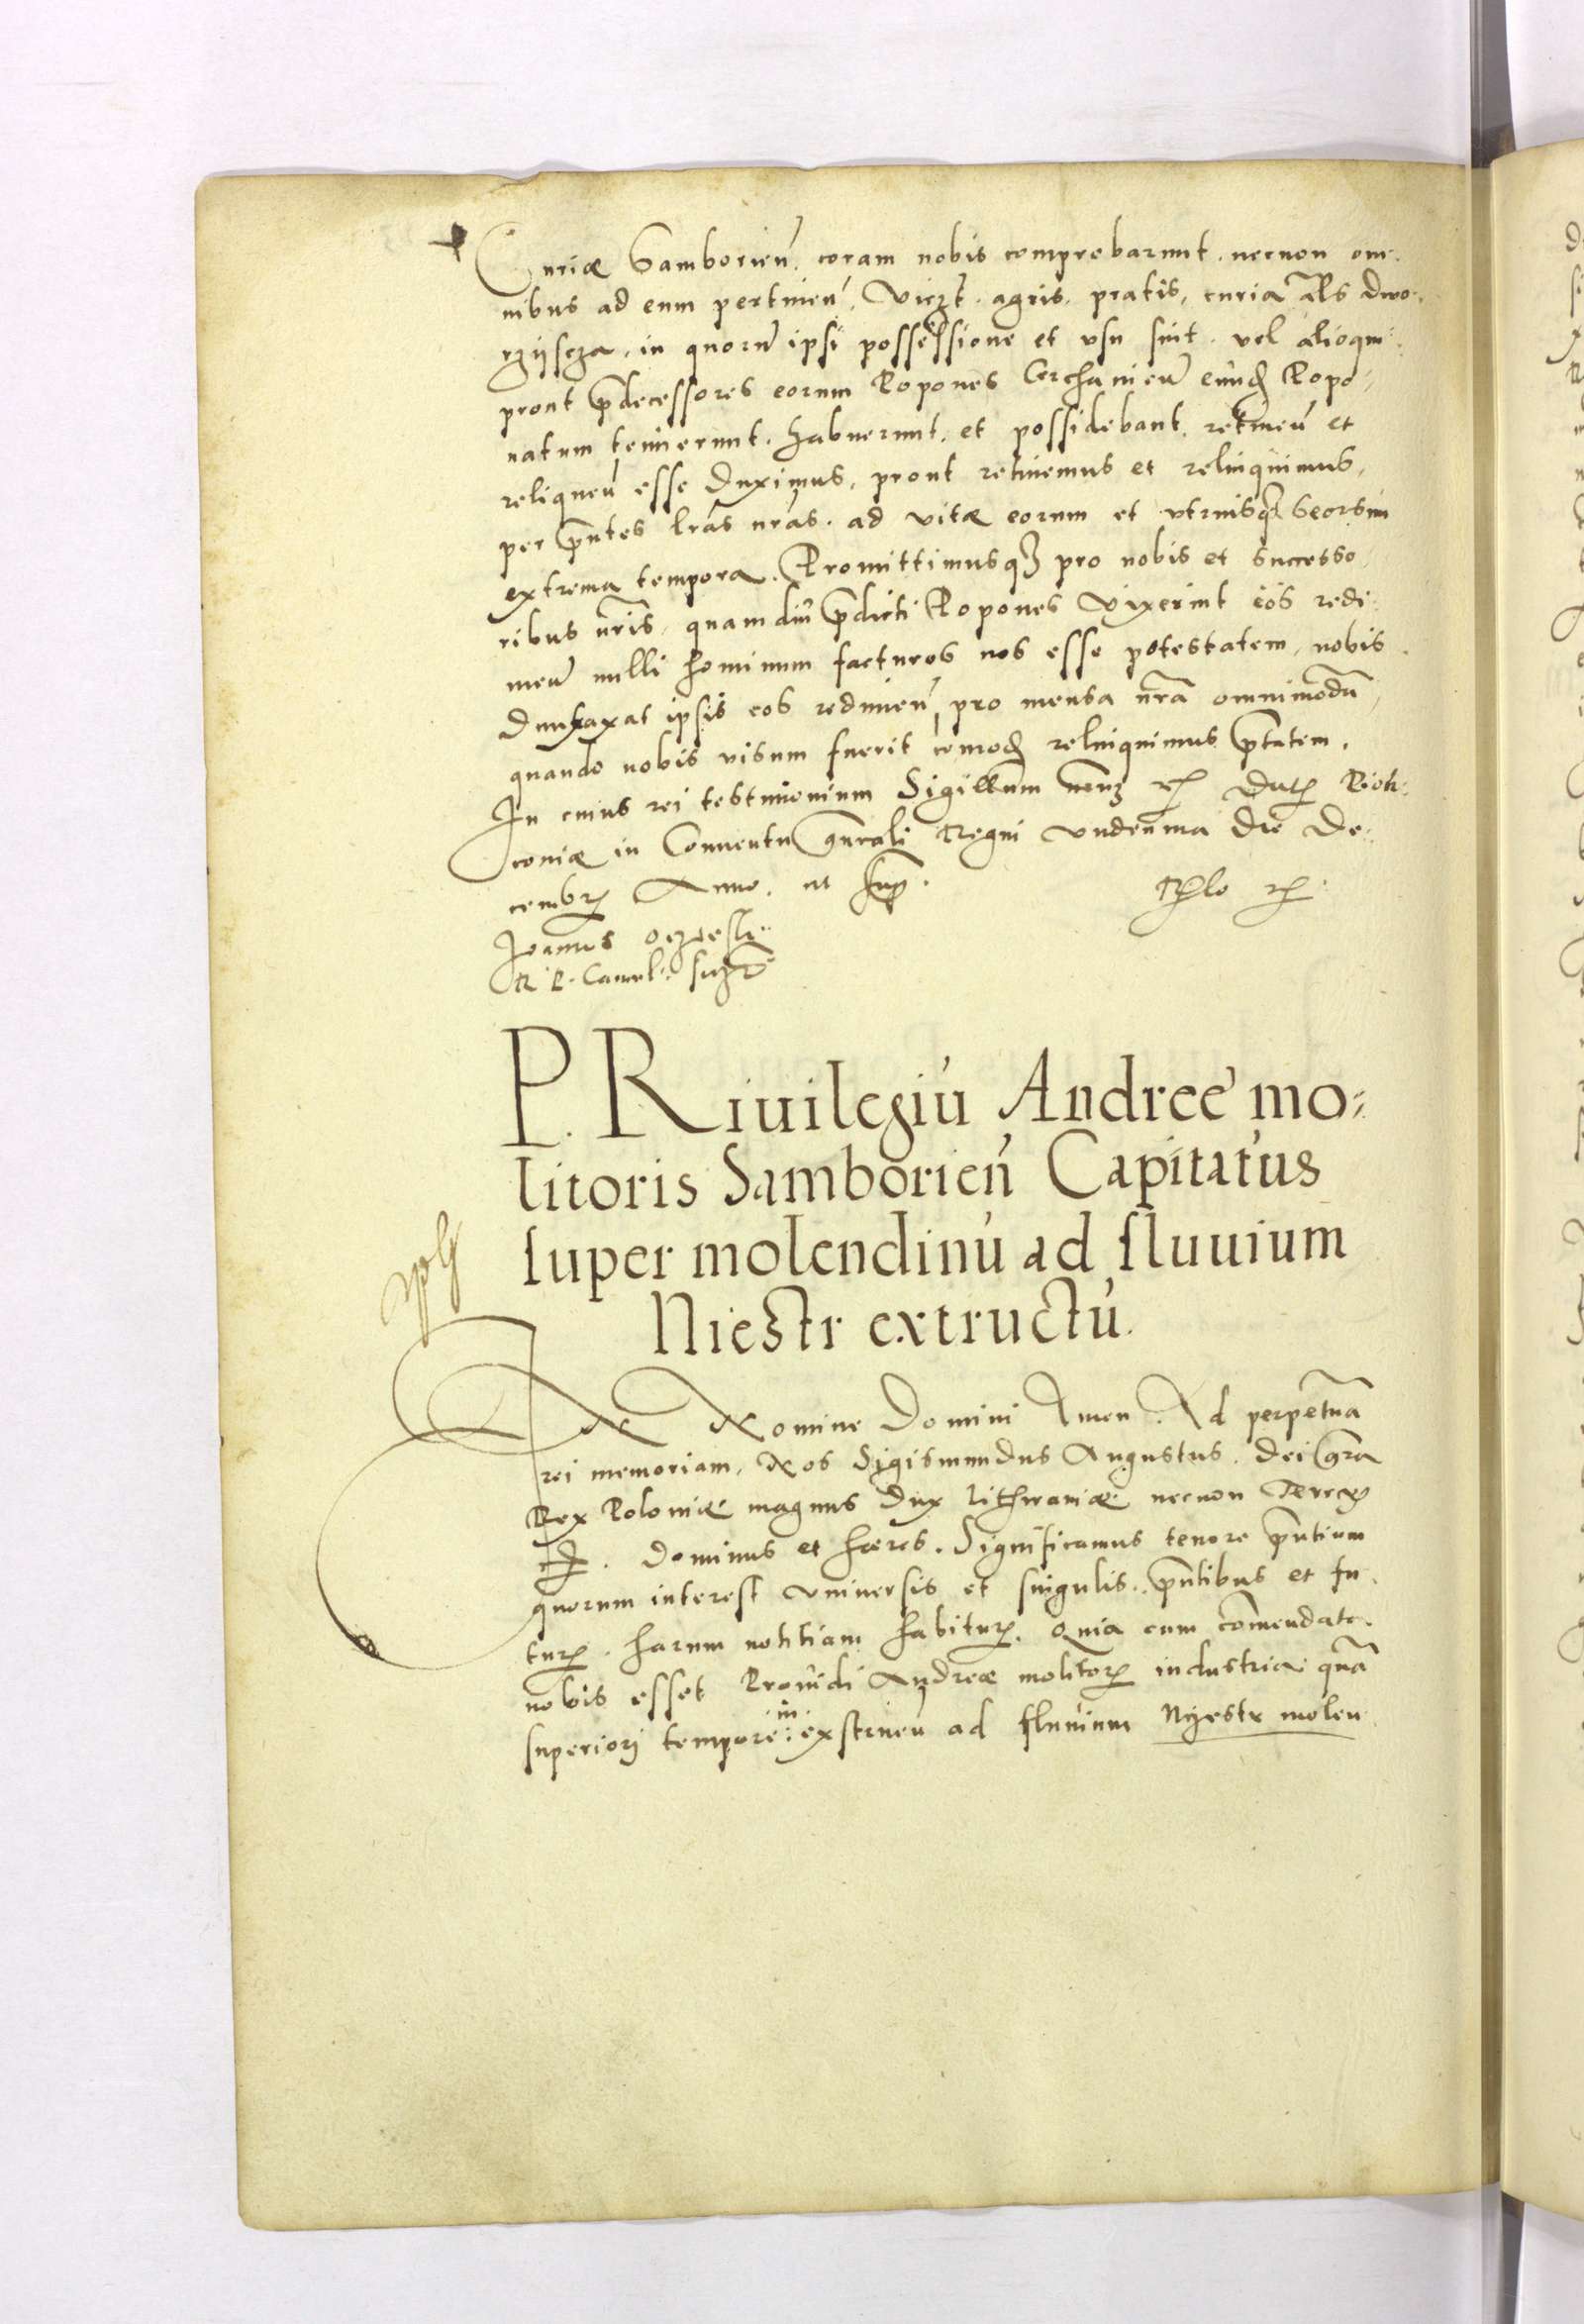 Curiæ Samborieñ. coram nobis comprobarunt. necnon om-
nibus ad eum pertineñ. Viczt. agris. pratis, curia als dwo-
rzyscza. in quorũ ipsi possessione et vsu sint. vel alioqui
prout p̃decessores eorum Popones Cerchanieñ eund Popo-
natum tenuerunt. habuerunt. et possidebant. retineñ et
relinqueñ esse Duximus, prout retinemus et relinquimus,
per p̃ntes lras nras. ad vitæ eorum et vtriusq3 Seorsim
extrema tempora. Promittimusq3 pro nobis et Successo-
ribus nris, quamdiu p̃dicti Popones Vixerint eos redi-
meñ nulli hominum facturos nos esse potestatem, nobis
Duntaxat ipsis eos redimeñ pro mensa nra omnimodã,
quando nobis visum fuerit relinquimus p̃tatem.
In cuius rei testimonium Sigillum Dat Piotr-
coniæ in Conuentu gñrali Regni vndecima die De-
cembr Anno. ut sup.
Joannes Oczeski
R. P. Cancel.
P. Riuilegiũ Andree mo-
litoris Samborieñ Capitatus
super molendinũ ad fluuium
Niestr extructũ.
In Nomine Domini Amen. Ad perpetuã
rei memoriam, Nos Sigismundus Augustus. Dei gra
Rex Poloniæ magnus Dux Lithwaniæ necnon Terrar
Dominus et hæres. Significamus tenore p̃ntium
quorum interest vniuersis et singulis. p̃ntibus et fu-
tur. harum notitiam habitur. Quia cum comendata
nobis esset Prouidi Andreæ molitor industria quã
superiorj tempore in exstrueñ ad fluuium Nyestr molen